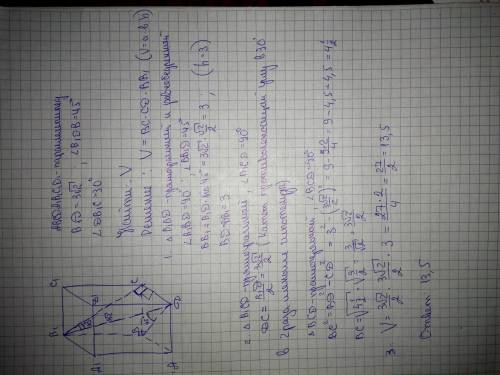 ABCDA₁B₁C₁D₁ -
B₁D = 3√2 ; ∠B₁DB = 45°
∠DB₁C = 30°
Найти: V
Решение: V = BC·CD·BB₁ (V = a·b·h)
1. △B₁BD - прямоугольный и равнобедренный
∠B₁BD = 90°, ∠BB₁D = 45°
BB₁ = B₁D·sin 45° = 3√2·√2/2 = 3 ; (h = 3)
BD = BB₁ = 3
2. △B₁CD - прямоугольный, ∠B₁CD = 90°
DC = B₁D/2 = 3√2/2 (катет противолежащий углу в 30°
в 2 раза меньше гипотенузы)
△BCD - прямоугольный, ∠BCD = 90°
BC² = BD² - CD² = 3² - (3√2/2)² = 9 - 9·2/4 = 9 - 4,5 = 4,5 = 4 1/2
BC = √4 1/2 = √9/2 = 3/√2 = 3√2/2
3. V = 3√2/2 · 3√2/2 · 3 = 27·2/4 = 27/2 = 13,5
Ответ: 13,5
B₁
C₁
A₁
D₁
B
C
A
D